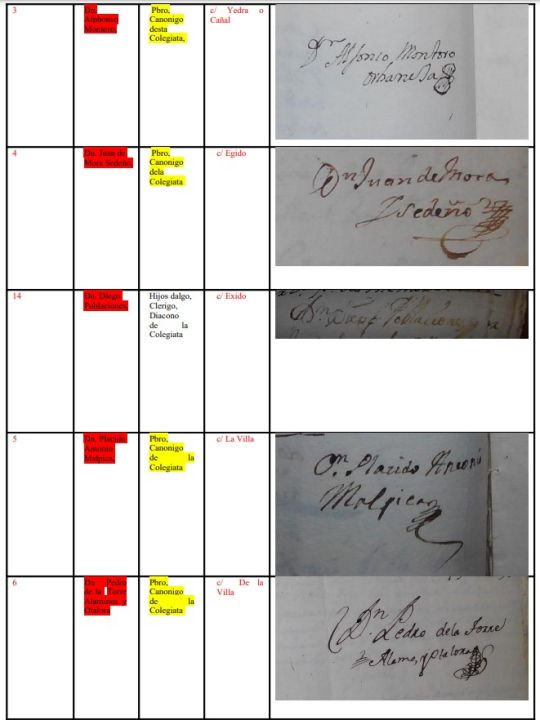 3
Dn. Alphonso Montoro,
Pbro, Canonigo desta Colegiata,
c/ Yedra o Cañal
Dn Alfonso Montoro
Orbaneja
4
Dn. Juan de Mora Sedeño,
Pbro, Canonigo dela Colegiata
c/ Egido
Dn Juan de Mora
Y sedeño
14
Dn. Diego Poblaciones
Hijos dalgo, Clerigo, Diacono de la Colegiata
c/ Exido
Poblaciones
5
Dn. Placido Antonio Malpica,
Pbro, Canonigo de la Colegiata
c/ La Villa
Dn. Placido Antoni
Malpica
6
Dn Pedro de la Torre Alaminos y Otalora
Pbro, Canonigo de la Colegiata
c/ De la Villa
Dn. Pedro dela Torre